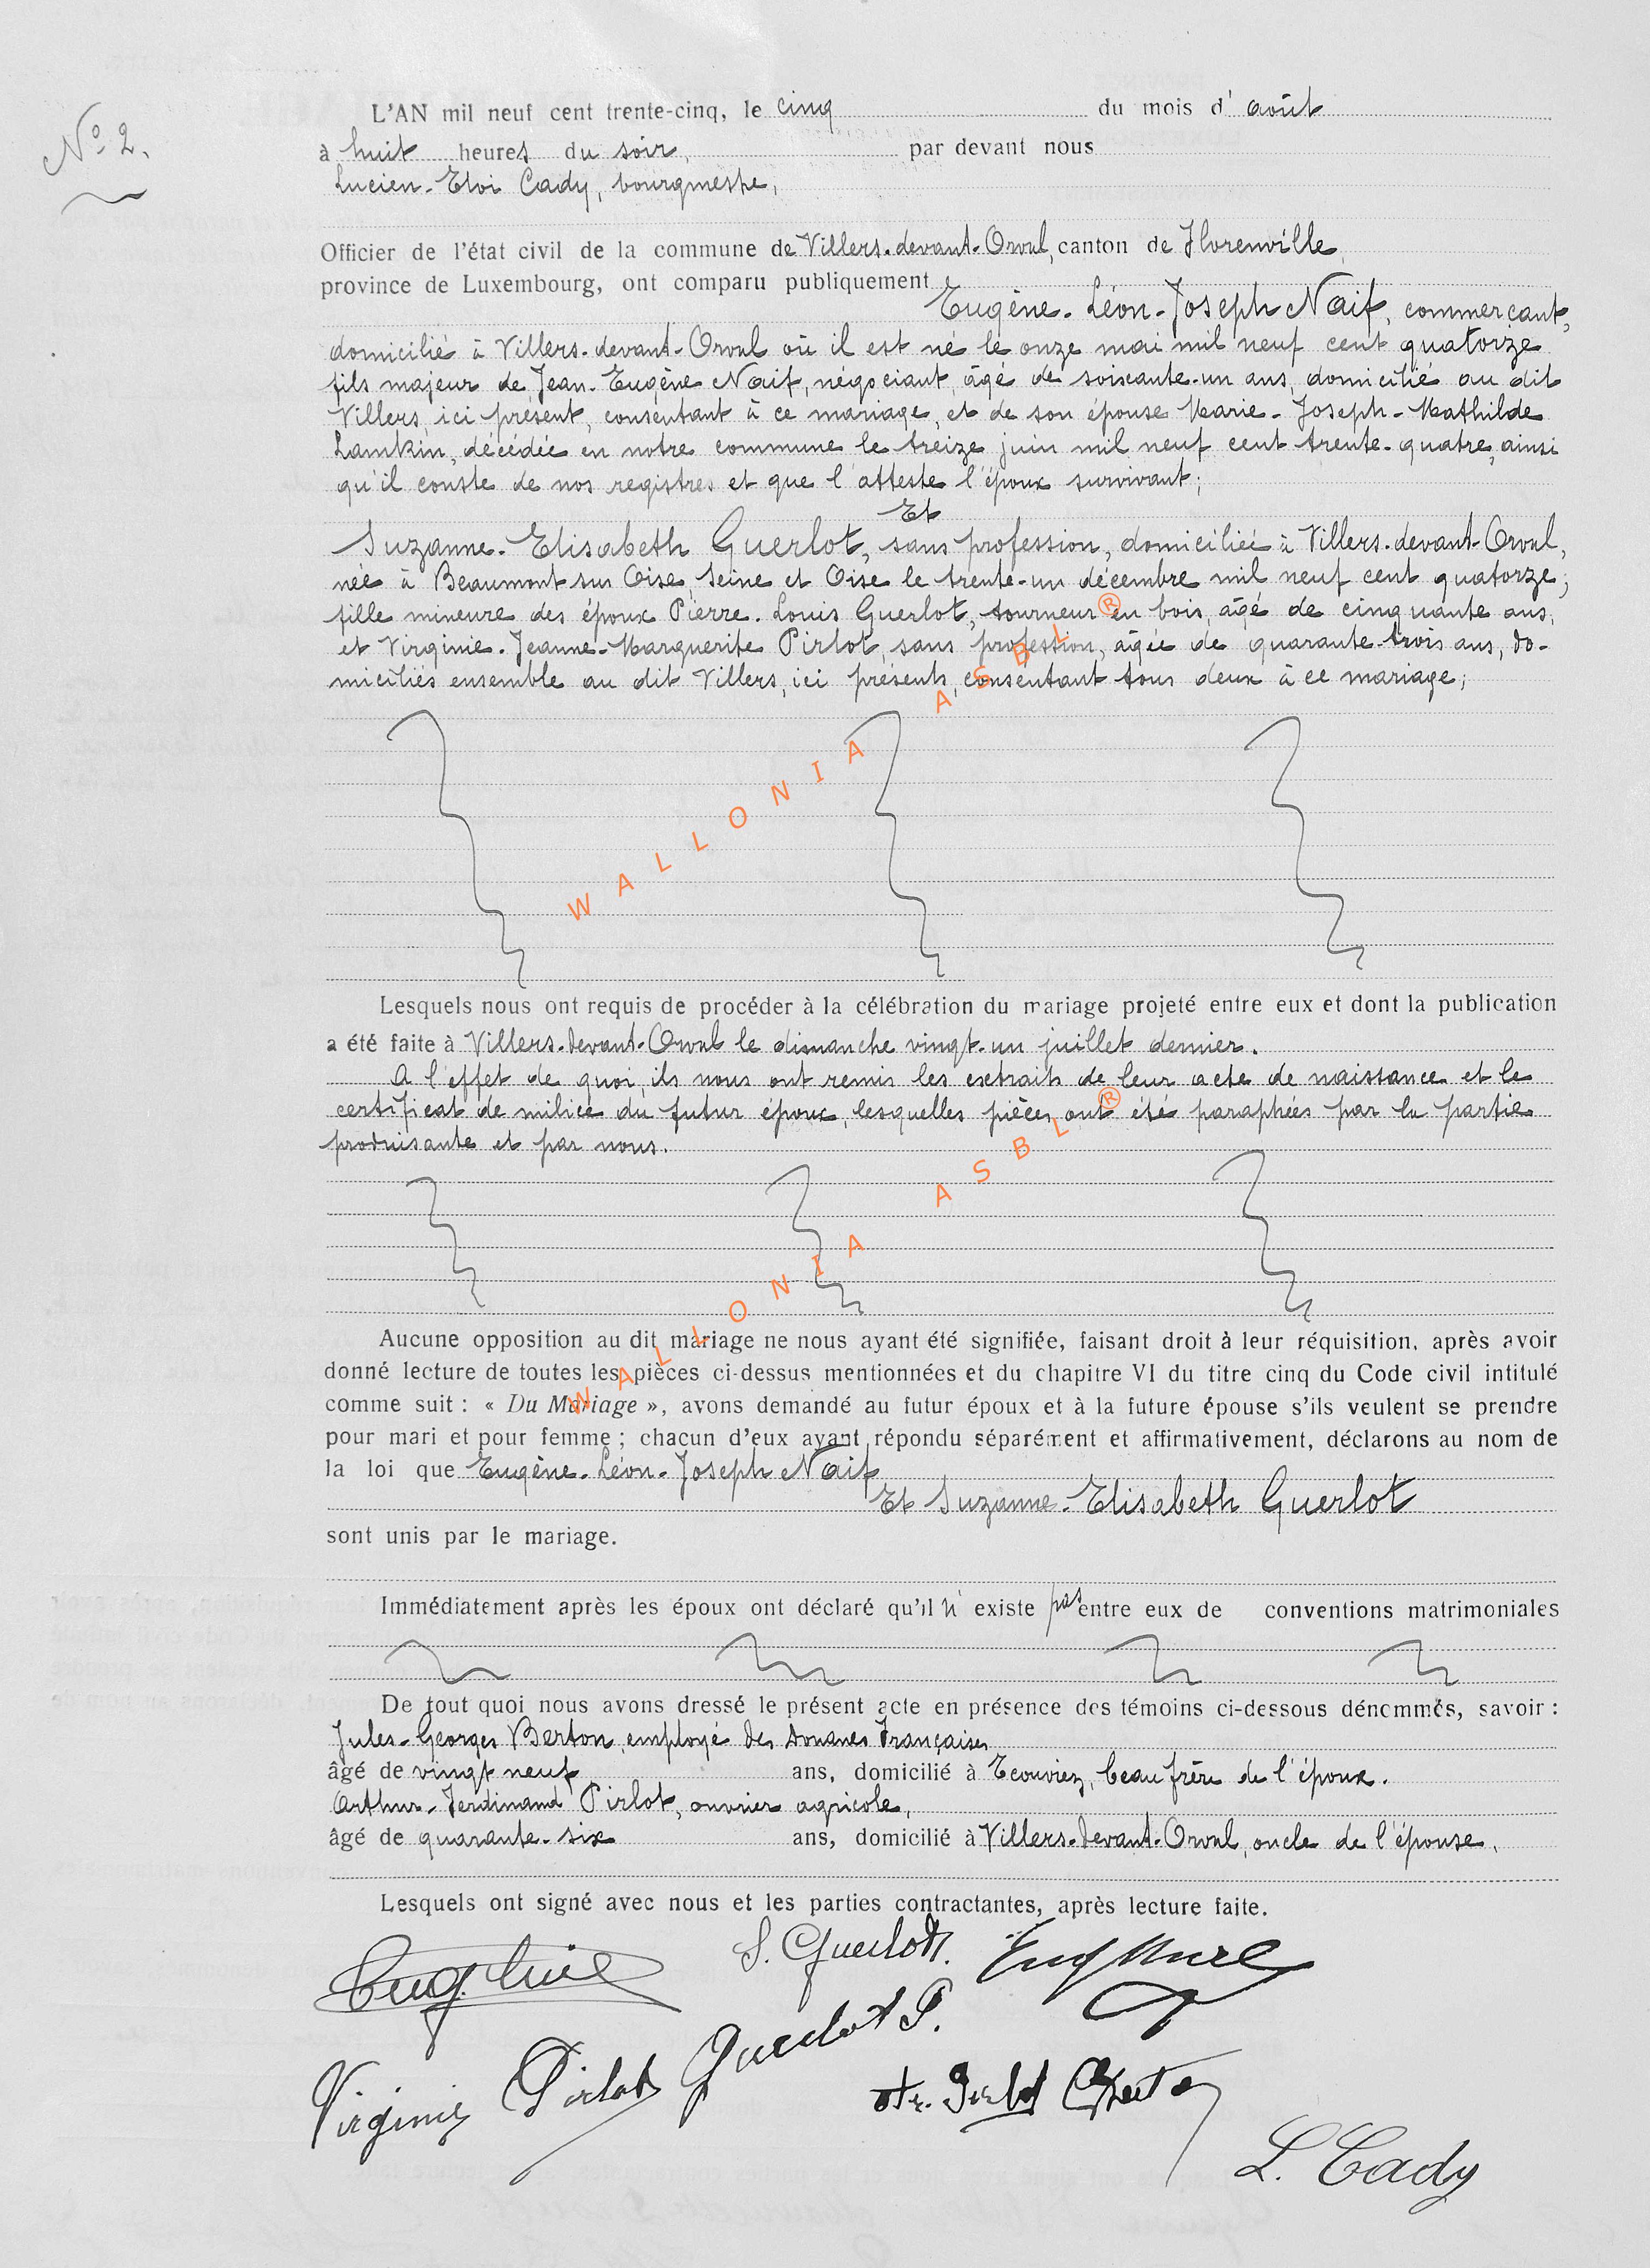 N° 2.
L'AN mil neuf cent trente-cinq, le cinq du mois d' août
à huit heures du soir, par devant nous
Lucien-Eloi Cady, bourgmestre,
Officier de l'état civil de la commune de Villers-devant-Orval, canton de Florenville,
province de Luxembourg, ont comparu publiquement
Eugène-Léon-Joseph Naif, commerçant,
domicilié à Villers-devant-Orval où il est né le onze mai mil neuf cent quatorze
fils majeur de Jean-Eugène Naif, négociant, âgé de soixante-un ans, domicilié au dit
Villers, ici présent, consentant à ce mariage, et de son épouse Marie-Joseph-Mathilde
Lamkin, décédée en notre commune le treize juin mil neuf cent trente-quatre, ainsi
qu'il conste de nos registres et que l'atteste l'époux survivant;
Et
Suzanne-Elisabeth Guerlot, sans profession, domiciliée à Villers-devant-Orval,
née à Beaumont sur Oise, Seine et Oise le trente-un décembre mil neuf cent quatorze,
fille mineure des époux Pierre-Louis Guerlot, tourneur en bois, âgé de cinquante ans,
et Virginie-Jeanne-Marguerite Pirlot, sans profession, âgée de quarante-trois ans, do-
miciliés ensemble au dit Villers, ici présents, consentant tous deux à ce mariage;
WALLONIA ASBL®
Lesquels nous ont requis de procéder à la célébration du mariage projeté entre eux et dont la publication
a été faite à Villers-devant-Orval le dimanche vingt-un juillet dernier.
A l'effet de quoi, ils nous ont remis les extraits de leur acte de naissance et le
certificat de milice du futur époux, lesquelles pièces ont été paraphées par la partie
produisante et par nous.
WALLONIA ASBL®
Aucune opposition au dit mariage ne nous ayant été signifiée, faisant droit à leur réquisition, après avoir
donné lecture de toutes les pièces ci-dessus mentionnées et du chapitre VI du titre cinq du Code civil intitulé
comme suit : « Du Mariage », avons demandé au futur époux et à la future épouse s'ils veulent se prendre
pour mari et pour femme ; chacun d'eux ayant répondu séparément et affirmativement, déclarons au nom de
la loi que Eugène-Léon-Joseph Naif
Et Suzanne-Elisabeth Guerlot
sont unis par le mariage.
Immédiatement après les époux ont déclaré qu'il n'existe pas entre eux de conventions matrimoniales
De tout quoi nous avons dressé le présent acte en présence des témoins ci-dessous dénommés, savoir :
Jules-Georges Berton, employé des Douanes Françaises
âgé de vingt neuf ans, domicilié à Ecouviez, beau frère de l'époux.
Arthur-Ferdinand Pirlot, ouvrier agricole,
âgé de quarante-six ans, domicilié à Villers-devant-Orval, oncle de l'épouse.
Lesquels ont signé avec nous et les parties contractantes, après lecture faite.
S. Guerlot.
Virginie Pirlot Guerlot P.
Pirlot
L. Cady